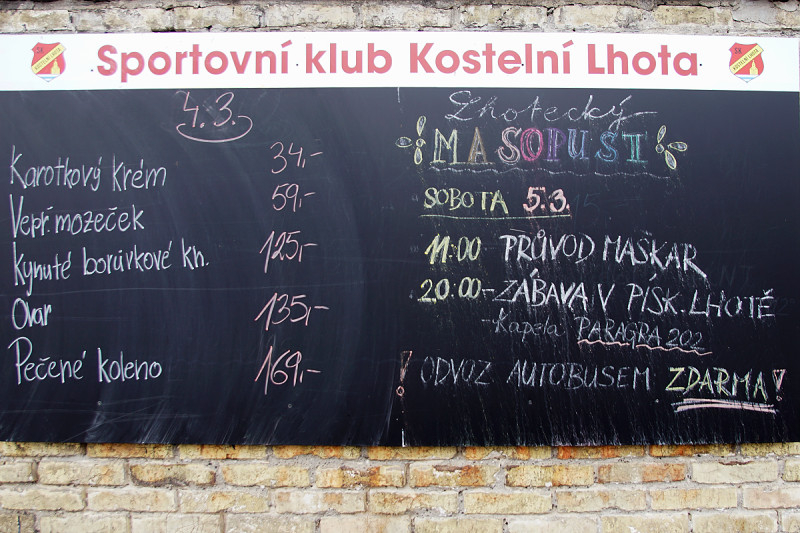 Sportovní klub Kostelní Lhota
4.3.
Karotkový krém 34,-
Vepř. mozeček 59,-
Kynuté borůvkové kn. 125,-
Ovar 135,-
Pečené koleno 169,-
Lhotecký
MASOPUST
SOBOTA 5.3.
11:00 PRŮVOD MAŠKAR
20.00 - ZÁBAVA V PÍSK. LHOTĚ
- Kapela PARAGRA 202
! ODVOZ AUTOBUSEM ZDARMA!